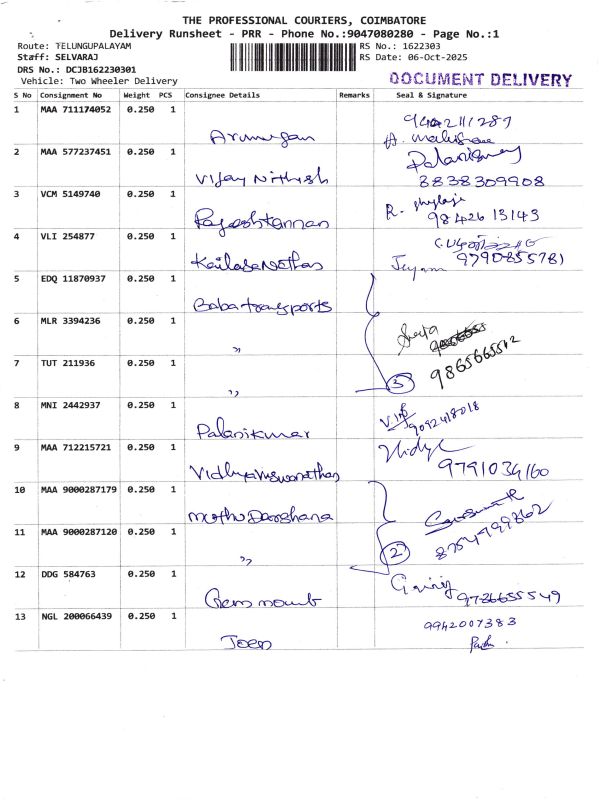 THE PROFESSIONAL COURIERS, COIMBATORE
Delivery Runsheet - PRR - Phone No.:9047080280 - Page No.:1
Route: TELUNGUPALAYAM RS No.: 1622303
Staff: SELVARAJ RS Date: 06-Oct-2025
DRS No.: DCJB162230301
Vehicle: Two Wheeler Delivery DOCUMENT DELIVERY
S No Consignment No Weight PCS Consignee Details Remarks Seal & Signature
1 MAA 711174052 0.250 1
Arumugam
2 MAA 577237451 0.250 1
Vijay Nithish 8838309908
3 VCM 5149740 0.250 1
Rajeshkannan 9842613143
4 VLI 254877 0.250 1
Kailasanathan Jeyam 9790855781
5 EDQ 11870937 0.250 1
Baba transports
6 MLR 3394236 0.250 1
"
7 TUT 211936 0.250 1
" 3 9865665512
8 MNI 2442937 0.250 1
Palanikumar 9092418018
9 MAA 712215721 0.250 1
Vidhya viswanathan 9791034160
10 MAA 9000287179 0.250 1
Muthu Darshana
11 MAA 9000287120 0.250 1
" 2 8754799862
12 DDG 584763 0.250 1
9786655549
13 NGL 200066439 0.250 1 9942007383
Joen